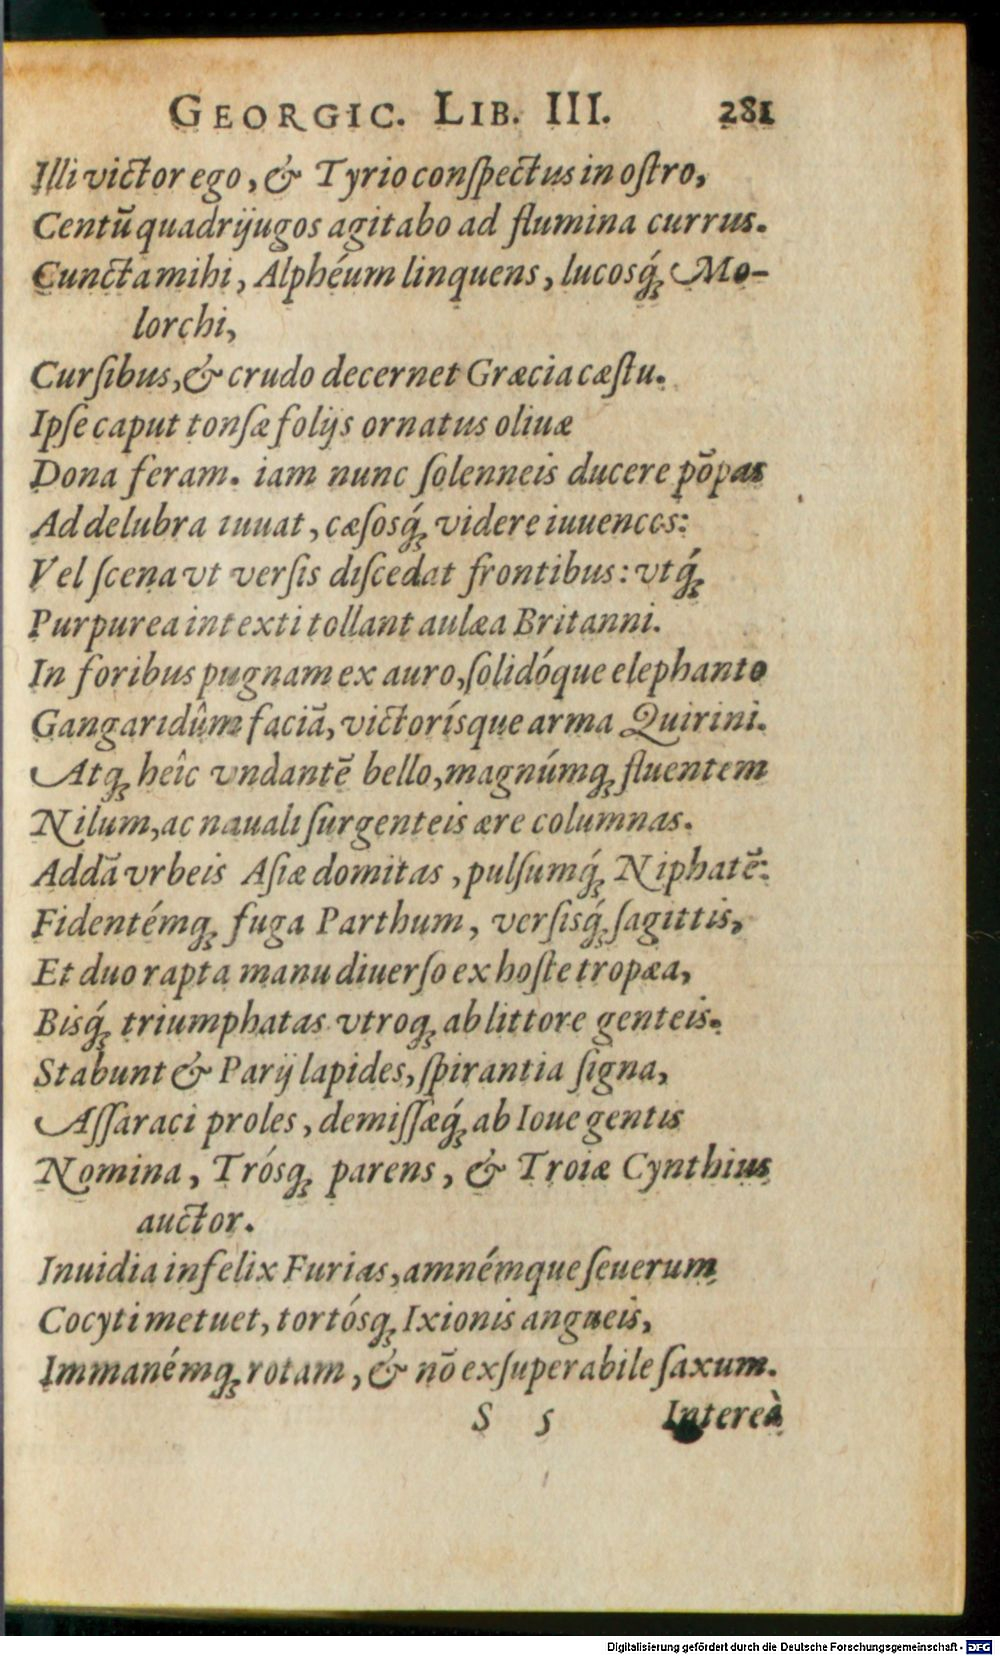 GEORGIC. LIB. III. 281
Illi victor ego, & Tyrio conſpectus in oſtro,
Centū quadrijugos agitabo ad flumina currus.
Cuncta mihi, Alphéum linquens, lucosq́; Mo-
lorchi,
Curſibus, & crudo decernet Græcia cæſtu.
Ipſe caput tonſæ folijs ornatus oliuæ
Dona feram. iam nunc ſolenneis ducere pōpas
Ad delubra iuuat, cæſosq́; videre iuuencos:
Vel ſcena vt verſis diſcedat frontibus: vtq́;
Purpurea intexti tollant aulæa Britanni.
In foribus pugnam ex auro, ſolidóque elephanto
Gangaridûm faciā, victorísque arma Quirini.
Atq; heîc vndantē bello, magnúmq; fluentem
Nilum, ac nauali ſurgenteis ære columnas.
Addā vrbeis Aſiæ domitas, pulſumq́; Niphatē:
Fidentémq; fuga Parthum, verſisq́; ſagittis,
Et duo rapta manu diuerſo ex hoſte tropæa,
Bisq́; triumphatas vtroq; ab littore genteis.
Stabunt & Parij lapides, ſpirantia ſigna,
Aſſaraci proles, demiſſæq́; ab Ioue gentis
Nomina, Trósq; parens, & Troiæ Cynthius
auctor.
Inuidia infelix Furias, amnémque ſeuerum
Cocyti metuet, tortósq; Ixionis angueis,
Immanémq; rotam, & nō exſuperabile ſaxum.
S 5 Intereà
Digitalisierung gefördert durch die Deutsche Forschungsgemeinschaft - DFG